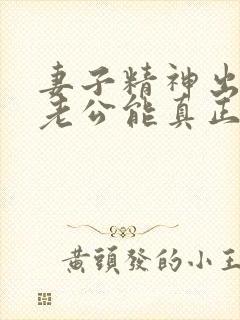 妻子精神出
老公能真正
黃頭發的小王